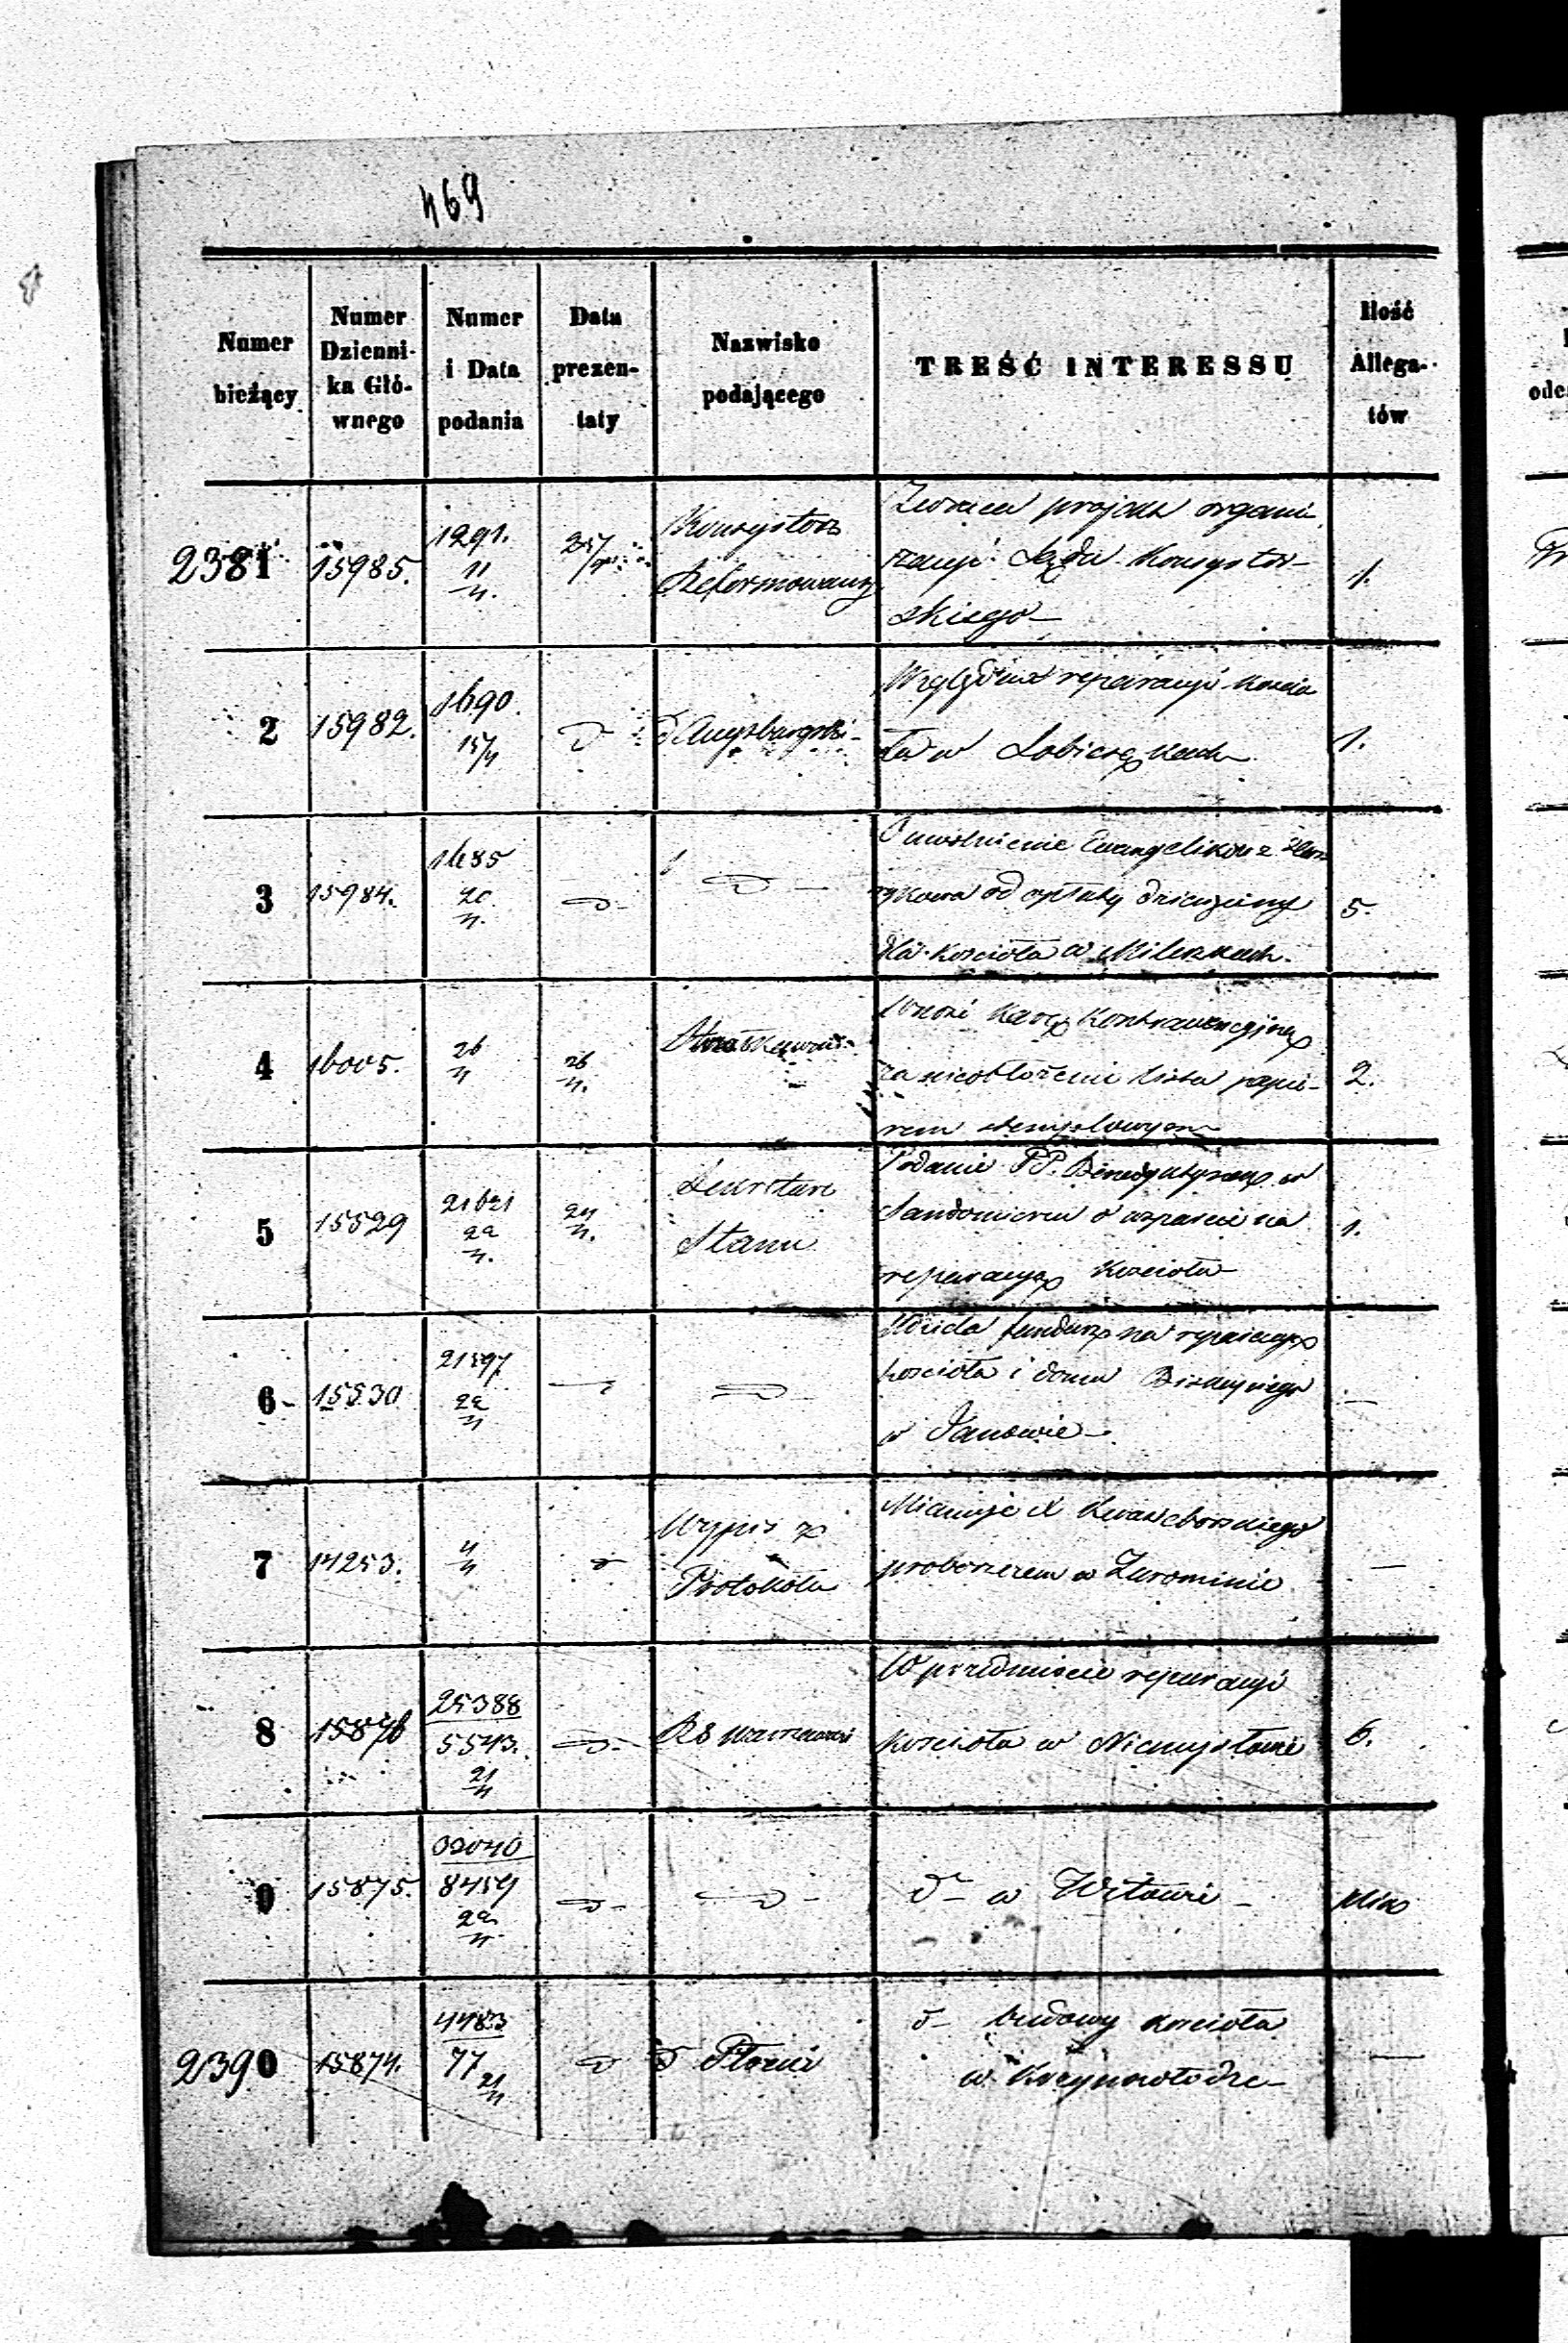 469
Numer bieżący
Numer Dzienni- ka Głó- wnego
Numer i Data podania
Data prezen- taty
Nazwisko podającego
TREŚĆ INTERESSU
Ilość Allega- tów
2381
15985.
1291.
11
4.
Konsystorz
Reformowany
Zwraca projekt organi
zacyi Sądu Konsystor-
skiego
1.
2
15982.
1690.
15/4
d
d Augsburgski
Względem reparacyi kościo
ła w
1.
3
15984.
1685
20
4.
d
d
O uwolnienie Ewangelików z
od opłaty dziesięciny
dla kościoła w Mileszkach.
5.
4
16005.
26
4
26
4.
Wnosi karę kontrawencyjną
za nieobłożenie lista papie-
rem stemplowym
2.
5
15529
21621
22
4.
24
4.
Sekretarz
Stanu
Podanie PP. Benedyktynek w
Sandomierzu o wsparcie na
reparacyą kościoła
1.
6
15530
21597
22
4
d
Udziela fundusz na reparacyą
kościoła i domu
w Janowie
7
14253.
4
4
d
Wypis z
Protokołu
Mianuje X
proboszczem w Żurominie
8
15876
25388
5543.
21
4
d
RG Warszawski
W przedmiocie reparacyi
kościoła w Niemysłowie
6.
9
15875.
32040
8459
22
4
d
d
d w Witowie
plik
2390
15874.
4483
77
21
4
d
d Płocki
d budowy kościoła
w Krzynowłodze